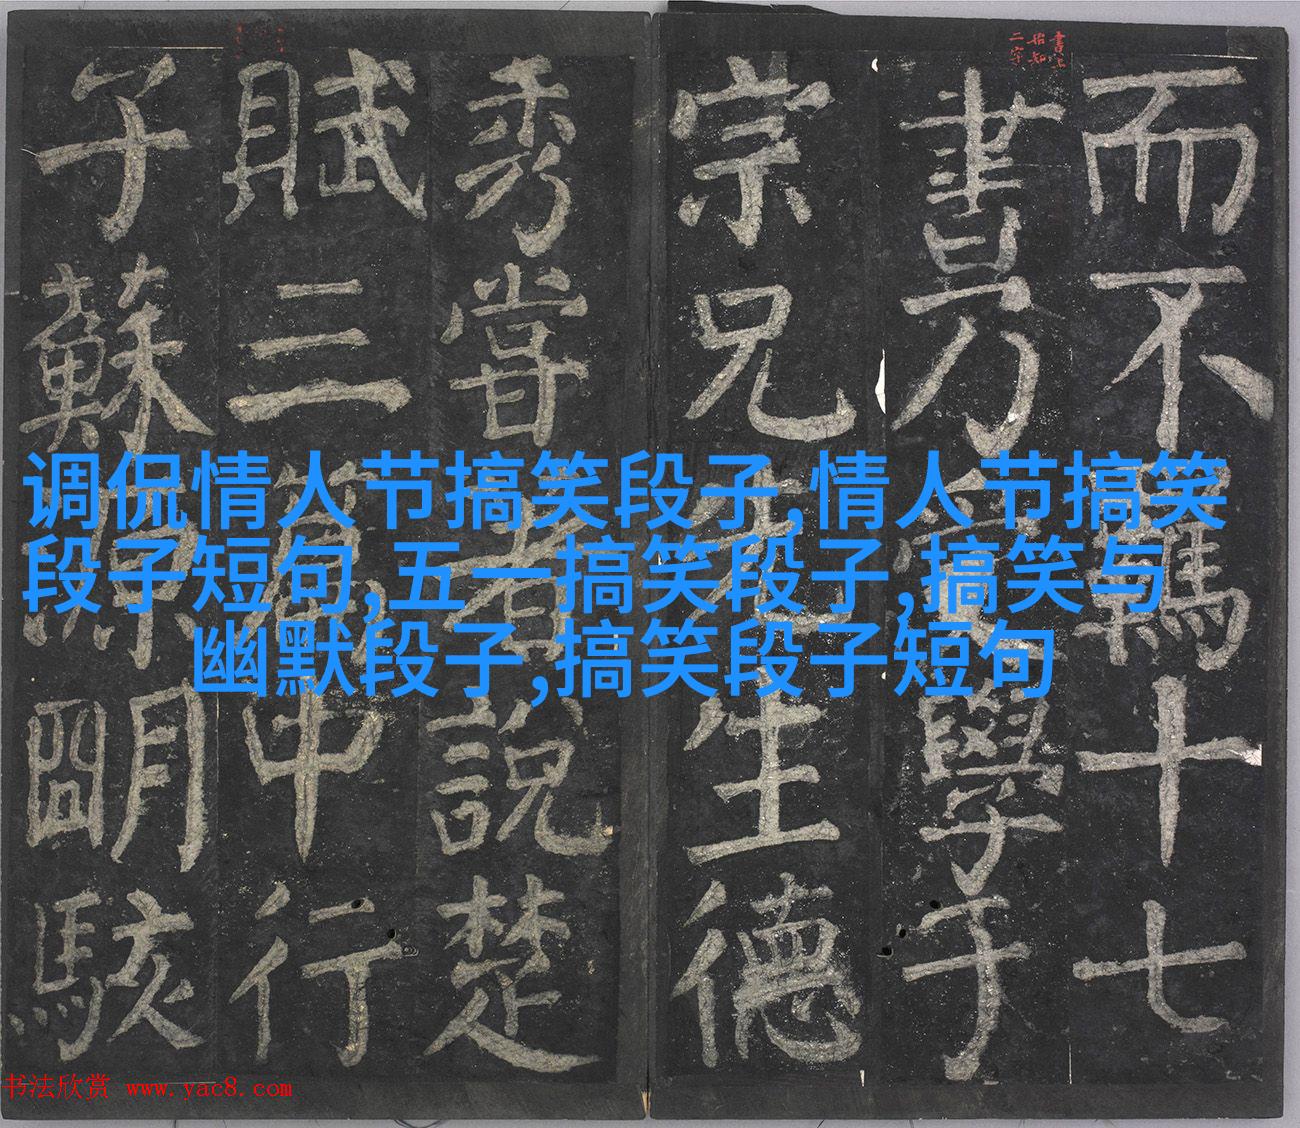 書上
始知
二字
而不羈十七
書乃授學于
宗兄先生德
秀嘗著說楚
賦三篇中行
子蘇源明駭
调侃情人节搞笑段子,情人节搞笑
段子短句,五一搞笑段子,搞笑与
幽默段子,搞笑段子短句
书法欣赏 www.yac8.com